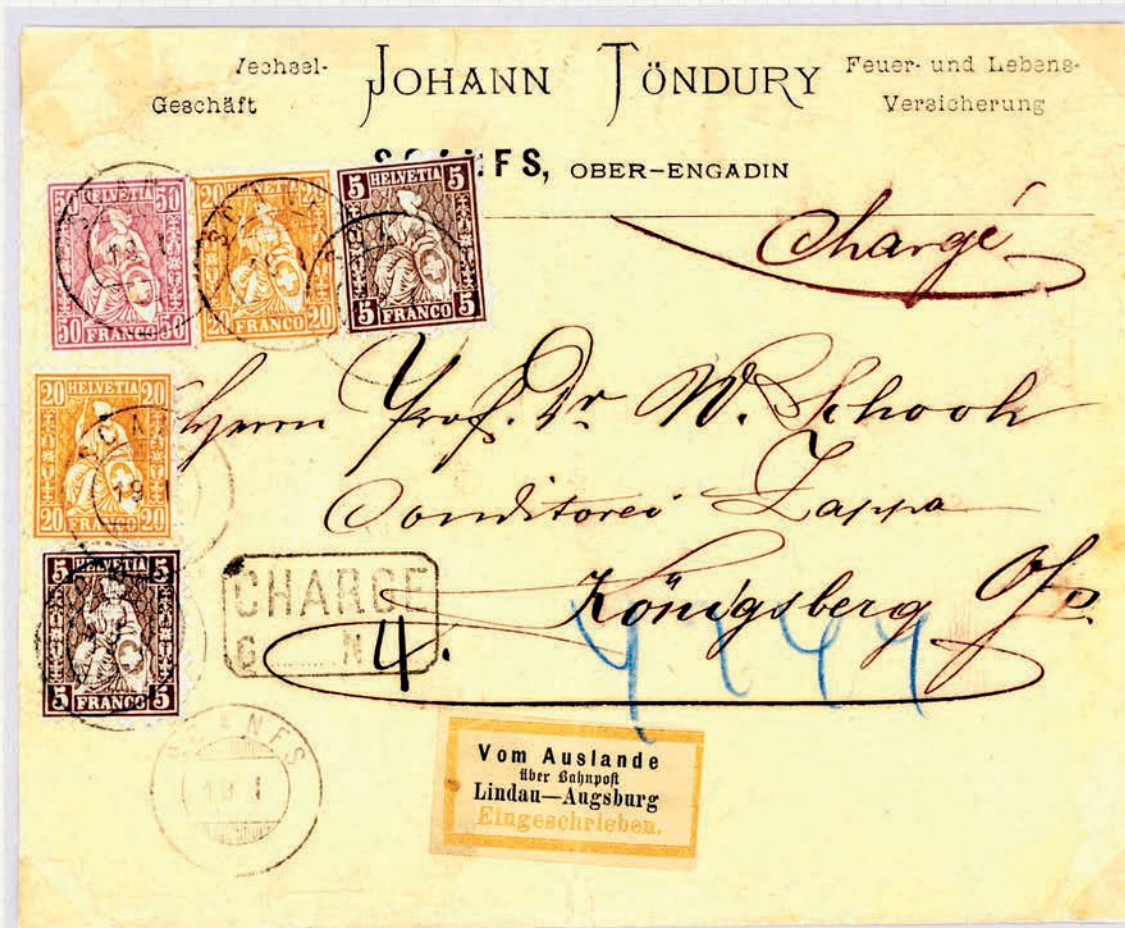 JOHANN TÖNDURY
Geschäft
Feuer- und Lebens-
Versicherung
OBER-ENGADIN
Chargé
50 HELVETIA 50
50 FRANCO 50
20 HELVETIA 20
20 FRANCO 20
5 HELVETIA 5
5 FRANCO 5
Herrn Prof. Dr W. Schoch
Conditorei Zappa
Königsberg
20 HELVETIA 20
20 FRANCO 20
5 HELVETIA 5
5 FRANCO 5
CHARGE
N
4.
Vom Auslande
über Bahnpost
Lindau—Augsburg
Eingeschrieben.